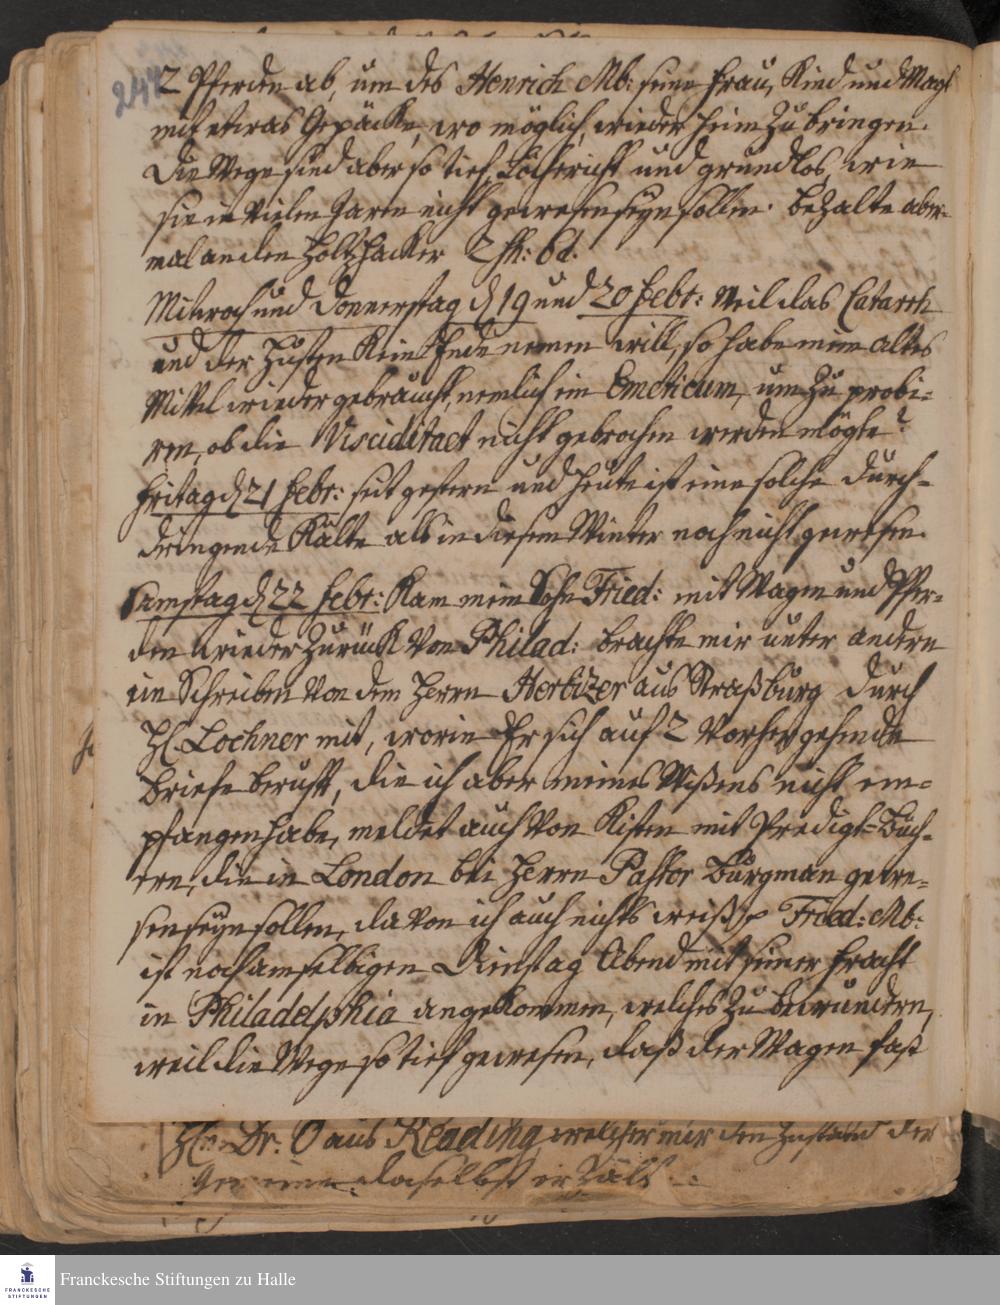 244
2 Pferden ab, um des Henrich Mb: seine Frau, Kind und Magd
mit etwas Gepäcke, wo möglich, wieder heim zu bringen.
Die Wege sind aber so tief, Löchericht und grundlos, wie
sie in vielen Jaren nicht gewesen seyn sollen. bezalte aber-
mal an den Holtzhacker 2 sh: 6 d.
Mitwoch und Donnerstag d 19 und 20 Febr: Weil das Catarrh
und der Husten Kein Ende nemen will, so habe mein altes
Mittel wieder gebraucht, nemlich ein Emeticum, um zu probi-
ren, ob die Visciditaet nicht gebrochen werden mögte?
Fritag d 21 Febr: seit gestern und heute ist eine solche durch-
dringende Kälte als in diesem Winter noch nicht gewesen.
Samstag d 22 Febr: Kam mein Sohn Fried: mit Wagen und Pfer-
den wieder zurück von Philad: brachte mir unter andern
ein Schreiben von dem Herrn Hertizer aus Straßburg durch
H. Lochner mit, worin Er sich auf 2 vorhergehende
Briefe beruft, die ich aber meines Wißens nicht em-
pfangen habe, meldet auch von Kisten mit Predigt-Büch-
ern, die in London bei Herrn Pastor Burgman gewe-
sen seyn sollen, davon ich auch nichts weiß Fried: Mb:
ist noch am selbigen Dienstag Abend mit seiner Fracht
in Philadelphia angekommen, welches zu bewundern,
weil die Wege so tief gewesen, daß der Wagen fast
Hn. Dr. O aus Reading, welcher mir den Zustand der
Gemeine daselbst erzält
Franckesche Stiftungen zu Halle
FRANCKESCHE
STIFTUNGEN